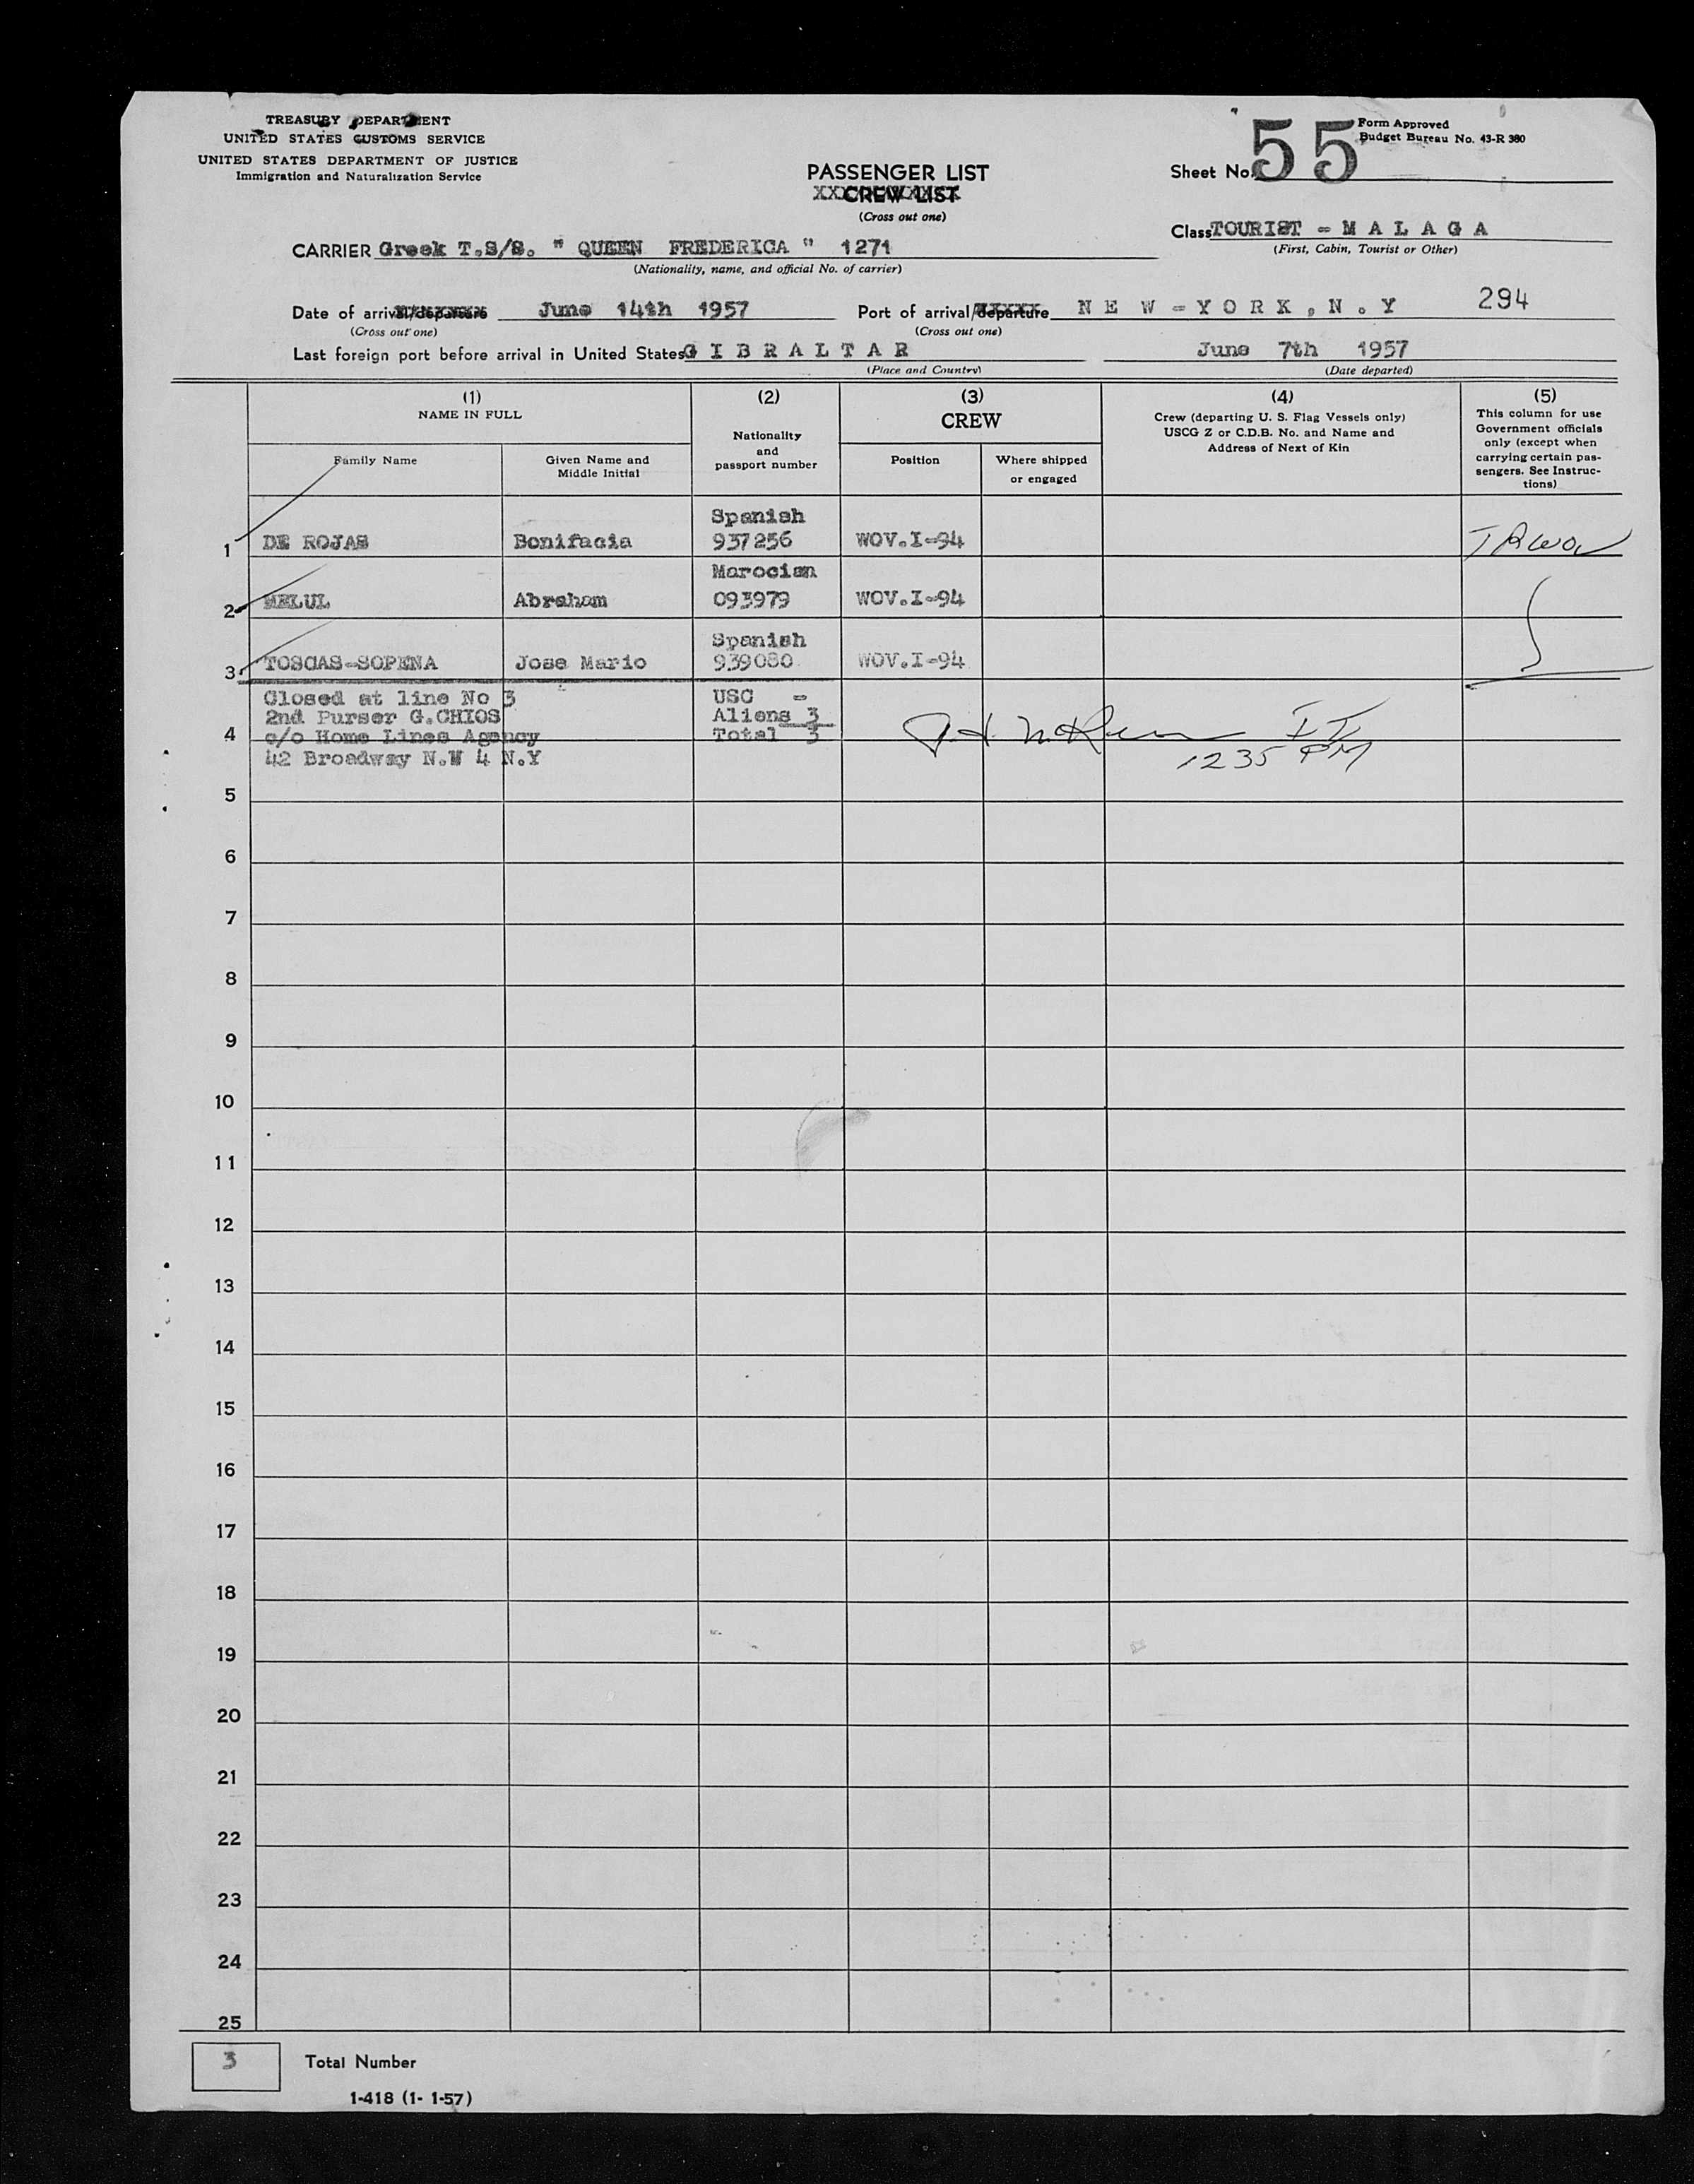 TREASURY DEPARTMENT
UNITED STATES CUSTOMS SERVICE
UNITED STATES DEPARTMENT OF JUSTICE
Immigration and Naturalization Service
Form Approved
Budget Bureau No. 43-R 380
PASSENGER LIST
CREW LIST
(Cross out one)
Sheet No. 55
CARRIER Greek T.S/S. " QUEEN FREDERICA " 1271
(Nationality, name, and official No. of carrier)
Class TOURIST - M A L A G A
(First, Cabin, Tourist or Other)
Date of arrival/departure June 14th 1957
(Cross out one)
Port of arrival/departure N E W - Y O R K , N . Y 294
(Cross out one)
Last foreign port before arrival in United States G I B R A L T A R June 7th 1957
(Place and Country) (Date departed)
(1) (2) (3) (4) (5)
NAME IN FULL
Family Name
Given Name and Middle Initial
Nationality and passport number
CREW
Position
Where shipped or engaged
Crew (departing U. S. Flag Vessels only)
USCG Z or C.D.B. No. and Name and
Address of Next of Kin
This column for use
Government officials
only (except when
carrying certain pas-
sengers. See Instruc-
tions)
Spanish
1 DE ROJAS Bonifacia 937256 WOV.I-94
Marocian
2 MELUL Abraham 093979 WOV.I-94
Spanish
3 TOSCAS-SOPENA Jose Mario 939080 WOV.I-94
Closed at line No 3 USC -
2nd Purser G.CHIOS Aliens 3
4 c/o Home Lines Agency Total 3
42 Broadway N.W 4 N.Y 1235 PM
5
6
7
8
9
10
11
12
13
14
15
16
17
18
19
20
21
22
23
24
25
3 Total Number
1-418 (1- 1-57)